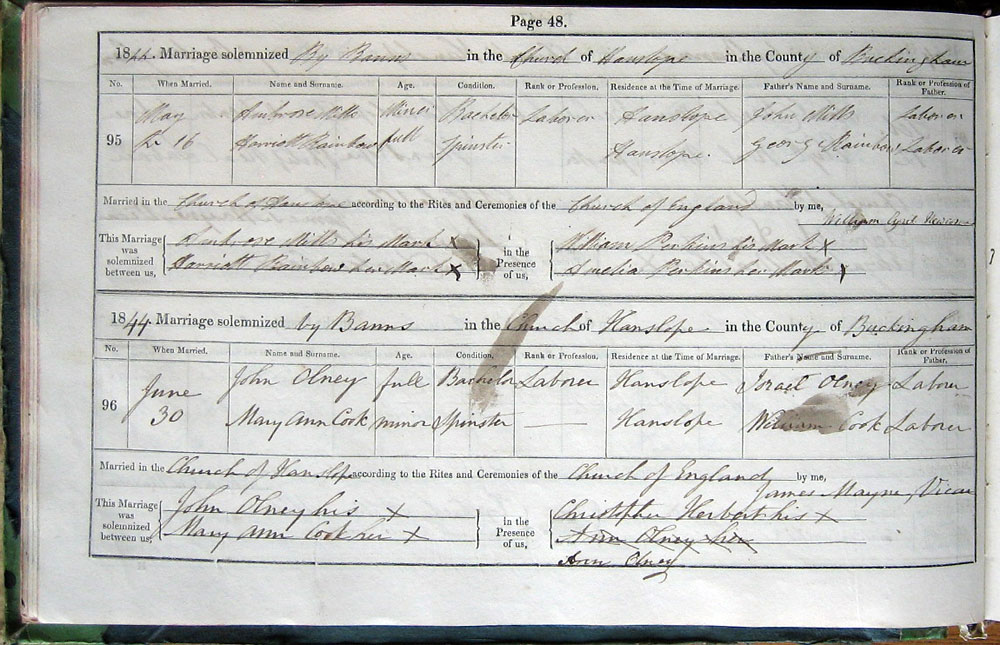 Page 48.
1844. Marriage solemnized By Banns in the Church of Hanslope in the County of Buckingham
No. When Married. Name and Surname. Age. Condition. Rank or Profession. Residence at the Time of Marriage. Father's Name and Surname. Rank or Profession of Father.
May Ambrose Mills Minor Bachelor Laborer Hanslope John Mills Laborer
95 16 Harriett Rainbow full Spinster Hanslope. George Rainbow Laborer
Married in the Church of Hanslope according to the Rites and Ceremonies of the Church of England by me,
William
This Marriage was solemnized between us, Ambrose Mills his Mark X in the Presence of us, William Perkins his Mark X
Harriett Rainbow her Mark X Amelia Perkins her Mark X
1844. Marriage solemnized by Banns in the Church of Hanslope in the County of Buckingham
No. When Married. Name and Surname. Age. Condition. Rank or Profession. Residence at the Time of Marriage. Father's Name and Surname. Rank or Profession of Father.
June John Olney full Bachelor Laborer Hanslope Israel Olney Laborer
96 30 Mary Ann Cook minor Spinster — Hanslope William Cook Laborer
Married in the Church of Hanslope according to the Rites and Ceremonies of the Church of England by me,
James Mayne, Vicar
This Marriage was solemnized between us, John Olney his X in the Presence of us, Christopher Herbert his X
Mary Ann Cook her X Ann Olney her
Ann Olney